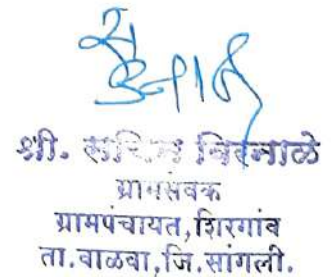 श्री. सचिन बिरनाळे
ग्रामसेवक
ग्रामपंचायत, शिरगांव
ता.वाळवा, जि.सांगली.